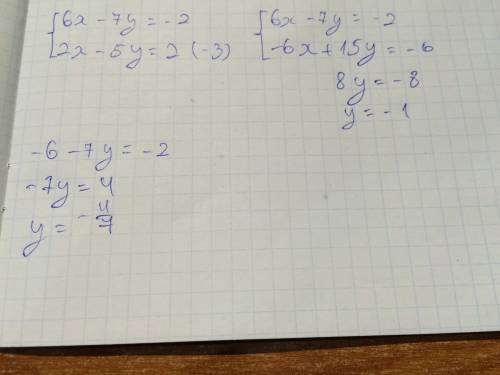 {6x - 7y = -2
{2x - 5y = 2 (-3)
{6x - 7y = -2
{-6x + 15y = -6
8y = -8
y = -1
-6 - 7y = -2
-7y = 4
y = -4/7